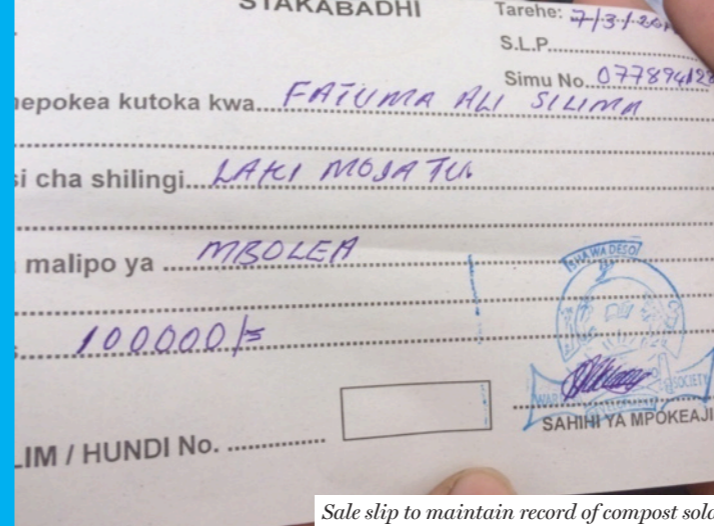 STAKABADHI
Tarehe: 7/3/20
S.L.P.
Simu No. 077894123
nepokea kutoka kwa FATUMA ALI SILIMA
si cha shilingi LAKI MOJA TU
malipo ya MBOLEA
100000/=
SHAWADESO
SOCIETY
SAHIHI YA MPOKEAJI
LIM / HUNDI No.
Sale slip to maintain record of compost sold